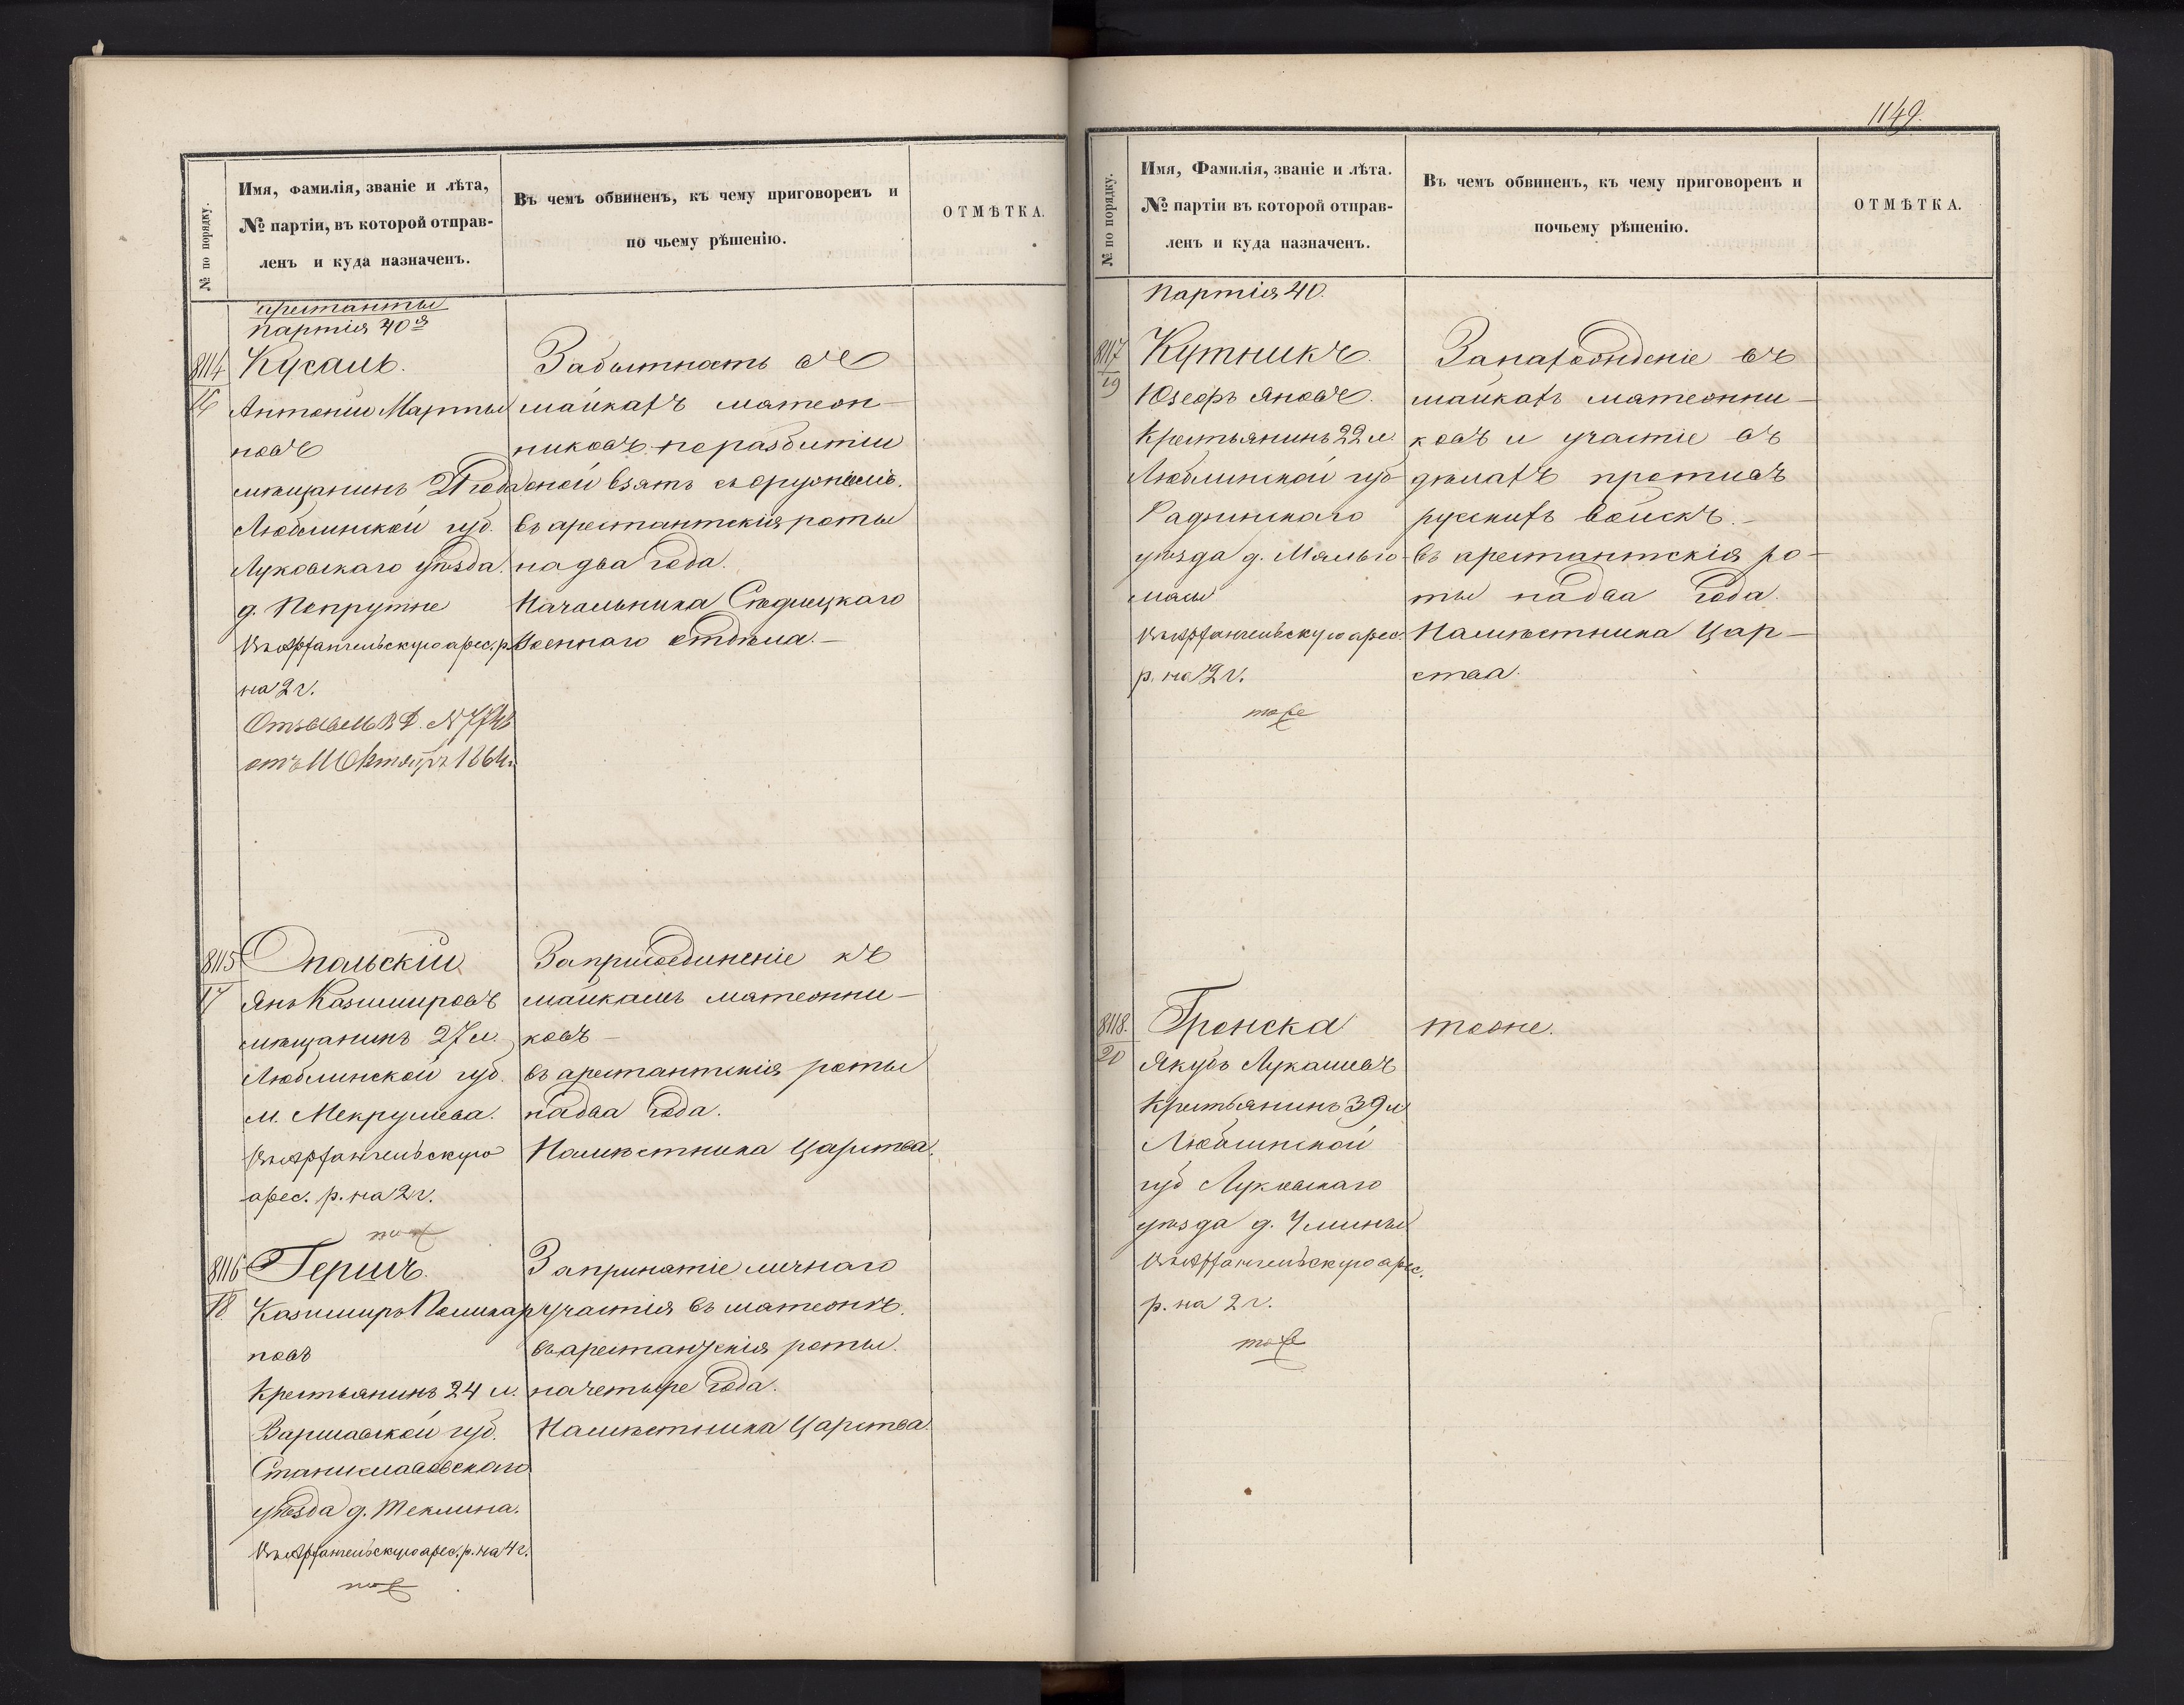 1149.
№ по порядку.
Имя, фамилія, званіе и лѣта,
№ партіи, въ которой отправ-
ленъ и куда назначенъ.
Въ чемъ обвиненъ, къ чему приговоренъ и
по чьему рѣшенію.
ОТМѢТКА.
арестанты
Партія 40я
8114
16
Кусаль.
Антоній Марты
новъ
мѣщанинъ 21 года
Люблинской губ.
Луковскаго уѣзда.
д. Попрутне
Въ Архангельскую арес. р.
на 2 г.
от 11 Октяб. 1864 г.
За бытность въ
шайкахъ мятеж-
никовъ по разбитіи
оной взятъ съ оружіемъ.
въ арестантскія роты
на два года.
Начальника Сѣдлецкаго
Военнаго отдѣла. —
8115
17
Опальскій
Янъ Казимировъ
мѣщанинъ 27 л.
Люблинской губ.
м.
Въ Архангельскую
арес. р. на 2 г.
тоже
За присоединеніе къ
шайкамъ мятежни-
ковъ —
въ арестантскія роты
на два года.
Намѣстника Царства.
8116
18
Гершъ.
Казимиръ
новъ
Крестьянинъ 24 л.
Варшавской губ.
Станиславовскаго
уѣзда д. Теклина.
Въ Архангельскую арес. р. на 4 г.
тоже
За принятіе личнаго
участія въ мятежѣ.
въ арестантскія роты.
на четыре года.
Намѣстника Царства.
№ по порядку.
Имя, Фамилія, званіе и лѣта.
№ партіи въ которой отправ-
ленъ и куда назначенъ.
Въ чемъ обвиненъ, къ чему приговоренъ и
почьему рѣшенію.
ОТМѢТКА.
Партія 40.
8117
19
Кутникъ.
Юзефъ Яновъ.
Крестьянинъ 22 л.
Люблинской губ
Радинскаго
уѣзда д.
Въ Архангельскую арес.
р. на 2 г.
тоже
За нахожденіе въ
шайкахъ мятежни-
ковъ и участіе въ
дѣлахъ противъ
русскихъ войскъ. —
въ арестантскія ро-
ты на два года.
Намѣстника Цар-
ства.
8118.
20
Гронска
Якубъ Лукашевъ
Крестьянинъ 39 л
Люблинской
губ Луковскаго
уѣзда д.
Въ Архангельскую арес.
р. на 2 г.
тоже
тоже.